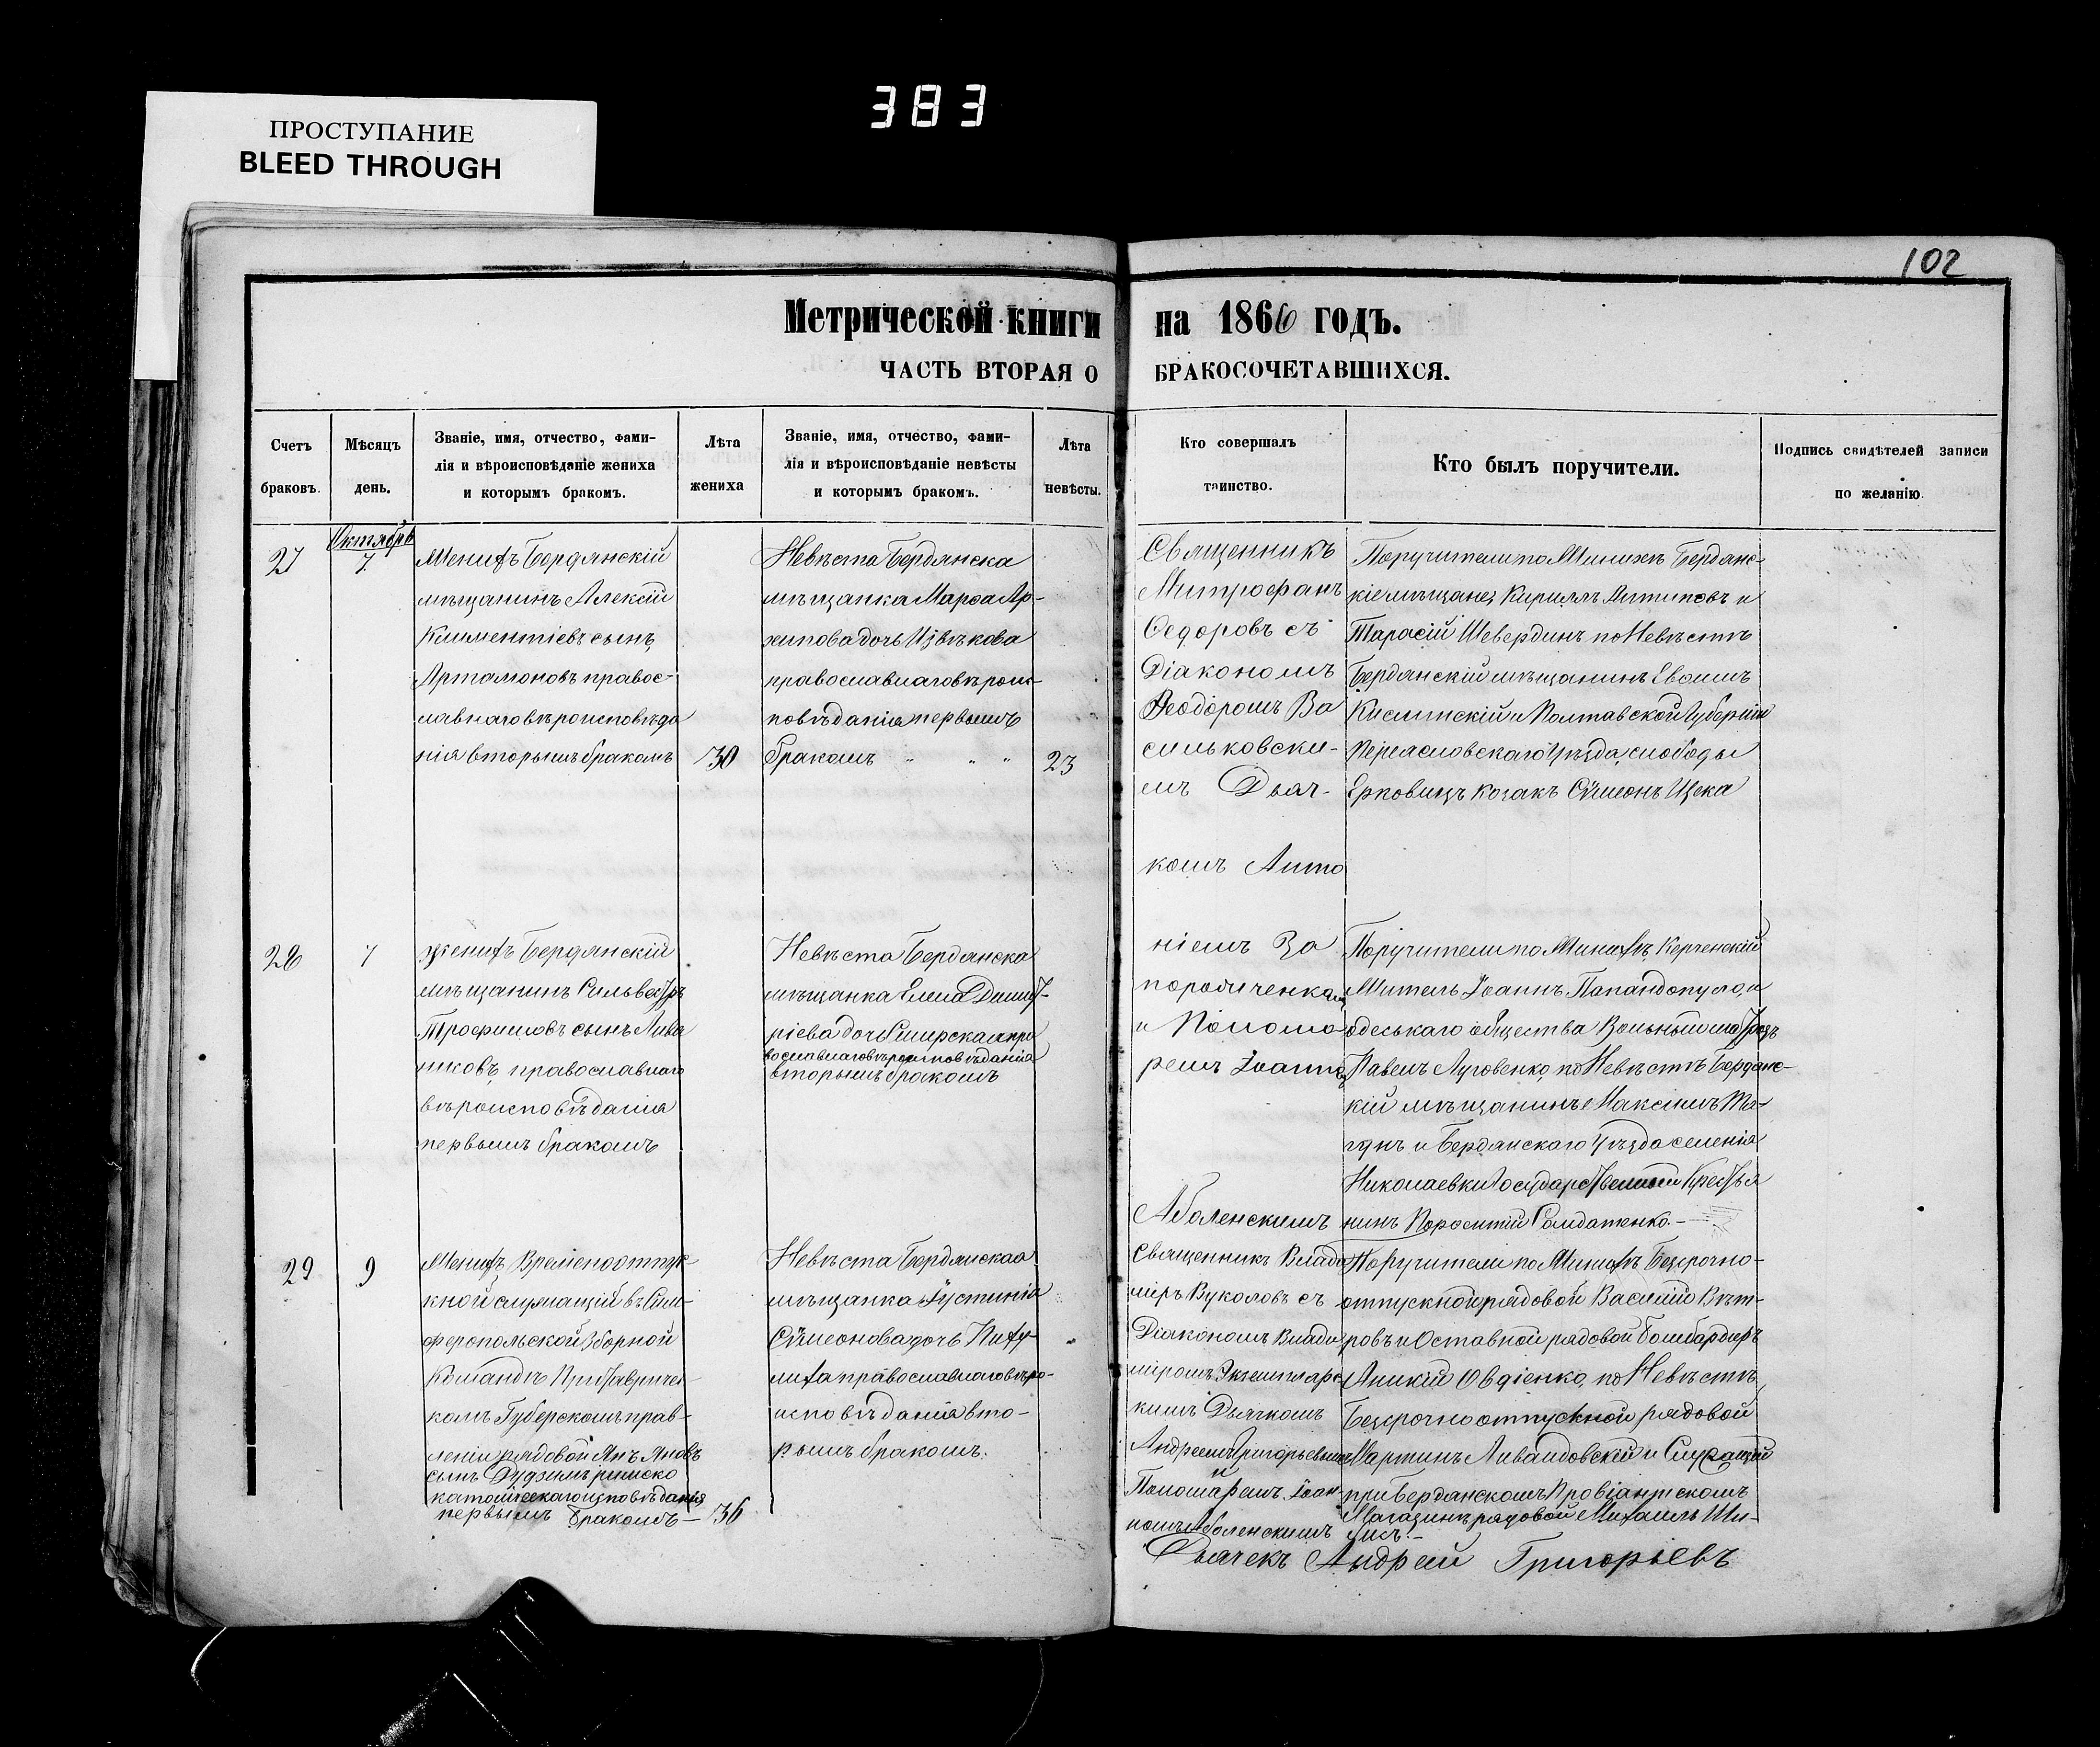 383
ПРОСТУПАНИЕ
BLEED THROUGH
102
Метрической книги на 1866 годъ.
ЧАСТЬ ВТОРАЯ О БРАКОСОЧЕТАВШИХСЯ.
Счетъ
браковъ.
Мѣсяцъ
день.
Званіе, имя, отчество, фами-
лія и вѣроисповѣданіе жениха
и которымъ бракомъ.
Лѣта
жениха
Званіе, имя, отчество, фами-
лія и вѣроисповѣданіе невѣсты
и которымъ бракомъ.
Лѣта
невѣсты.
Кто совершалъ
таинство.
Кто былъ поручители.
Подпись свидѣтелей записи
по желанію.
27
Октябрь
7.
Женихъ Бердянскій
мѣщанинъ Алексій
Климентіевъ сынъ
Артамоновъ правос-
лавнаго вѣроисповѣда
нія вторымъ бракомъ
30
Невѣста Бердянска
мѣщанка Марѳа Ар-
хипова дочь Извѣкова
православнаго вѣроис-
повѣданія первымъ
бракомъ
23
Священникъ
Митрофанъ
Ѳедоровъ съ
Діакономъ
Ѳеодоромъ Ва
сильковски-
мъ Дьяч-
комъ Анто
ніемъ За
пороженкам
и Поном
ремъ Іоанно
Аболенскимъ
Поручители по Женихѣ Бердянс-
кіе мѣщане, Кириллъ Антиповъ и
Тарасій Шевердинъ по Невѣстѣ
Бердянскій мѣщанинъ
и Полтавской Губерніи
Переясловскаго Уѣзда, слободы
Ерковицъ Козакъ Сѵмеонъ Щека
28
7
Женихъ Бердянскій
мѣщанинъ Сильвестръ
Трофимовъ сынъ Лива
шковъ, православнаго
вѣроисповѣданія
первымъ бракомъ
Невѣста Бердянска
мѣщанка Елена Димит-
ріева дочь пра
вославнаго вѣроисповѣданія
вторымъ бракомъ
Поручители по Женихѣ Керченскій
Житель Іоаннъ Папандопуло, и
одеськаго общества Вольный матрозъ
Павелъ Луговенко, по Невѣстѣ Бердянс-
кій мѣщанинъ Максимъ
и Бердянскаго Уѣзда селенія
Николаевки Государственный Крестья
нинъ Солдатенко.
29
9
Женихъ Временоотпус-
кной служащій въ Сим-
феропольской Зборной
Командѣ При Тавричес-
комъ Губерскомъ прав-
леніи рядовой Янъ Яновъ
сынъ римско
католическаго исповѣданія
первымъ бракомъ — 36
Невѣста Бердянская
мѣщанка Іустинія
Сѵмеонова дочь
православнаго вѣро-
исповѣданія вто-
рымъ бракомъ.
Священникъ Влади
міръ Вуколовъ съ
Діакономъ Влади
міромъ Экземпляре
кимъ Дьячкомъ
Андреемъ Григорьевымъ
и
Пономаремъ Іоан
номъ Аболенскимъ
Поручители по Женихѣ Безсрочно-
отпускной рядовой Василій Вѣт-
ровъ и Оставной рядовой Бомбардиръ
Аникій Овдіенко, по Невѣстѣ
Безсрочно отпускной рядовой
Мартинъ Ливандовскій и Служащій
при Бердянскомъ Провіантскомъ
Магазинѣ рядовой Михаилъ
Дьячекъ Андрей Григорьевъ